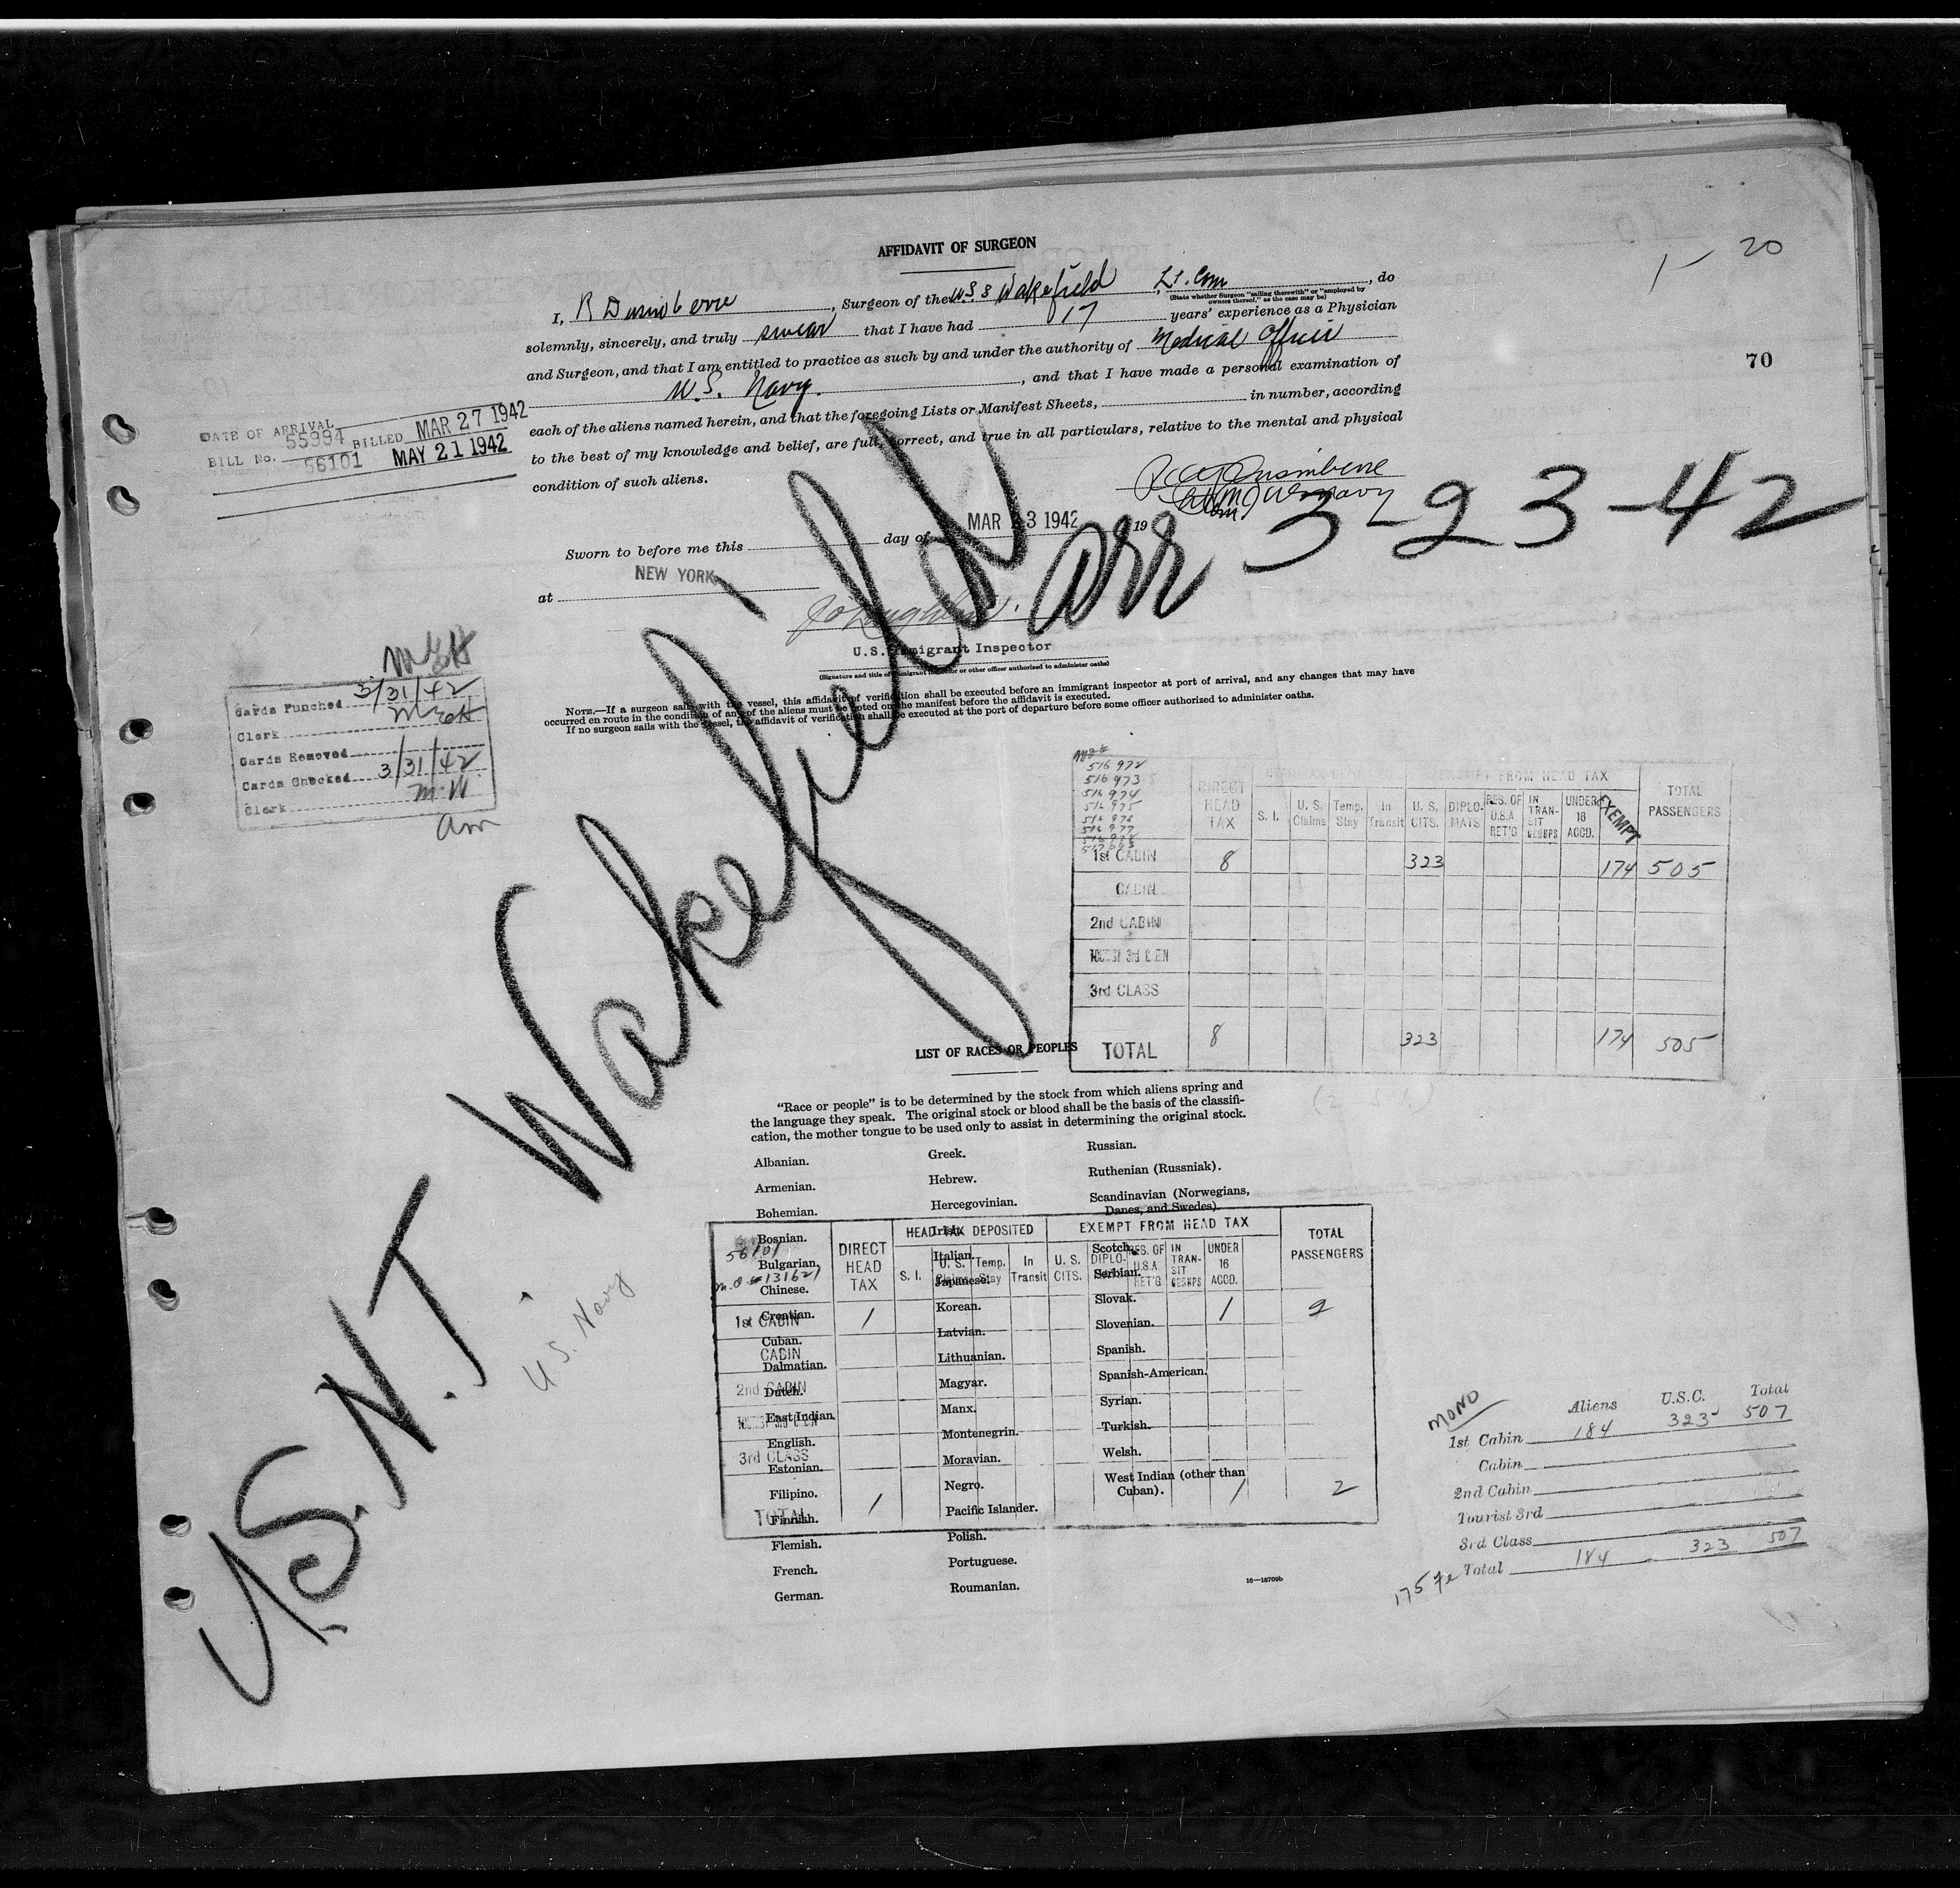 AFFIDAVIT OF SURGEON
1 - 20
I, R , Surgeon of the U.S.S Wakefield, Lt. Com, do
(State whether Surgeon "sailing therewith" or "employed by
owners thereof," as the case may be)
solemnly, sincerely, and truly swear that I have had 17 years' experience as a Physician
and Surgeon, and that I am entitled to practice as such by and under the authority of Medical Officer
U.S. Navy., and that I have made a personal examination of
each of the aliens named herein, and that the foregoing Lists or Manifest Sheets, in number, according
to the best of my knowledge and belief, are full, correct, and true in all particulars, relative to the mental and physical
condition of such aliens.
70
DATE OF ARRIVAL
BILL No. 55994 BILLED MAR 27 1942
56101 MAY 21 1942
Sworn to before me this day of MAR 23 1942 19
at NEW YORK,
U.S. Immigrant Inspector
(Signature and title of immigrant inspector or other officer authorized to administer oaths)
NOTE.—If a surgeon sails with the vessel, this affidavit of verification shall be executed before an immigrant inspector at port of arrival, and any changes that may have
occurred en route in the condition of any of the aliens must be noted on the manifest before the affidavit is executed.
If no surgeon sails with the vessel, the affidavit of verification shall be executed at the port of departure before some officer authorized to administer oaths.
U.S.N.T. Wakefield arr 3-23-42
U.S. Navy
Cards Punched 3/31/42
Clerk
Cards Removed
Cards Checked 3/31/42
Clerk M.W.
516972
516973
516974
516975
516976
516977
DIRECT HEAD TAX
HEAD TAX DEPOSITED
EXEMPT FROM HEAD TAX
TOTAL PASSENGERS
S. I. U. S. Claims Temp. Stay In Transit U. S. CITS. DIPLO-MATS RES. OF U.S.A RET'G IN TRAN-SIT GROUPS UNDER 16 ACCD. EXEMPT
1st CABIN 8 323 174 505
CABIN
2nd CABIN
TOURIST 3rd CABIN
3rd CLASS
TOTAL 8 323 174 505
LIST OF RACES OR PEOPLES
"Race or people" is to be determined by the stock from which aliens spring and
the language they speak. The original stock or blood shall be the basis of the classifi-
cation, the mother tongue to be used only to assist in determining the original stock.
Albanian.
Armenian.
Bohemian.
Bosnian.
Bulgarian.
Chinese.
Croatian.
Cuban.
Dalmatian.
Dutch.
East Indian.
English.
Estonian.
Filipino.
Finnish.
Flemish.
French.
German.
Greek.
Hebrew.
Hercegovinian.
Irish.
Italian.
Japanese.
Korean.
Latvian.
Lithuanian.
Magyar.
Manx.
Montenegrin.
Moravian.
Negro.
Pacific Islander.
Polish.
Portuguese.
Roumanian.
Russian.
Ruthenian (Russniak).
Scandinavian (Norwegians,
Danes, and Swedes).
Scotch.
Serbian.
Slovak.
Slovenian.
Spanish.
Spanish-American.
Syrian.
Turkish.
Welsh.
West Indian (other than
Cuban).
16—18709b
56101
M.O. #131621
DIRECT HEAD TAX
HEAD TAX DEPOSITED
EXEMPT FROM HEAD TAX
TOTAL PASSENGERS
S. I. U. S. Claims Temp. Stay In Transit U. S. CITS. DIPLO-MATS RES. OF U.S.A RET'G IN TRAN-SIT GROUPS UNDER 16 ACCD.
1st CABIN 1 1 2
CABIN
2nd CABIN
TOURIST 3rd CABIN
3rd CLASS
TOTAL 1 1 2
MONO
Aliens U.S.C. Total
1st Cabin 184 323 507
Cabin
2nd Cabin
Tourist 3rd
3rd Class
Total 184 323 507
175